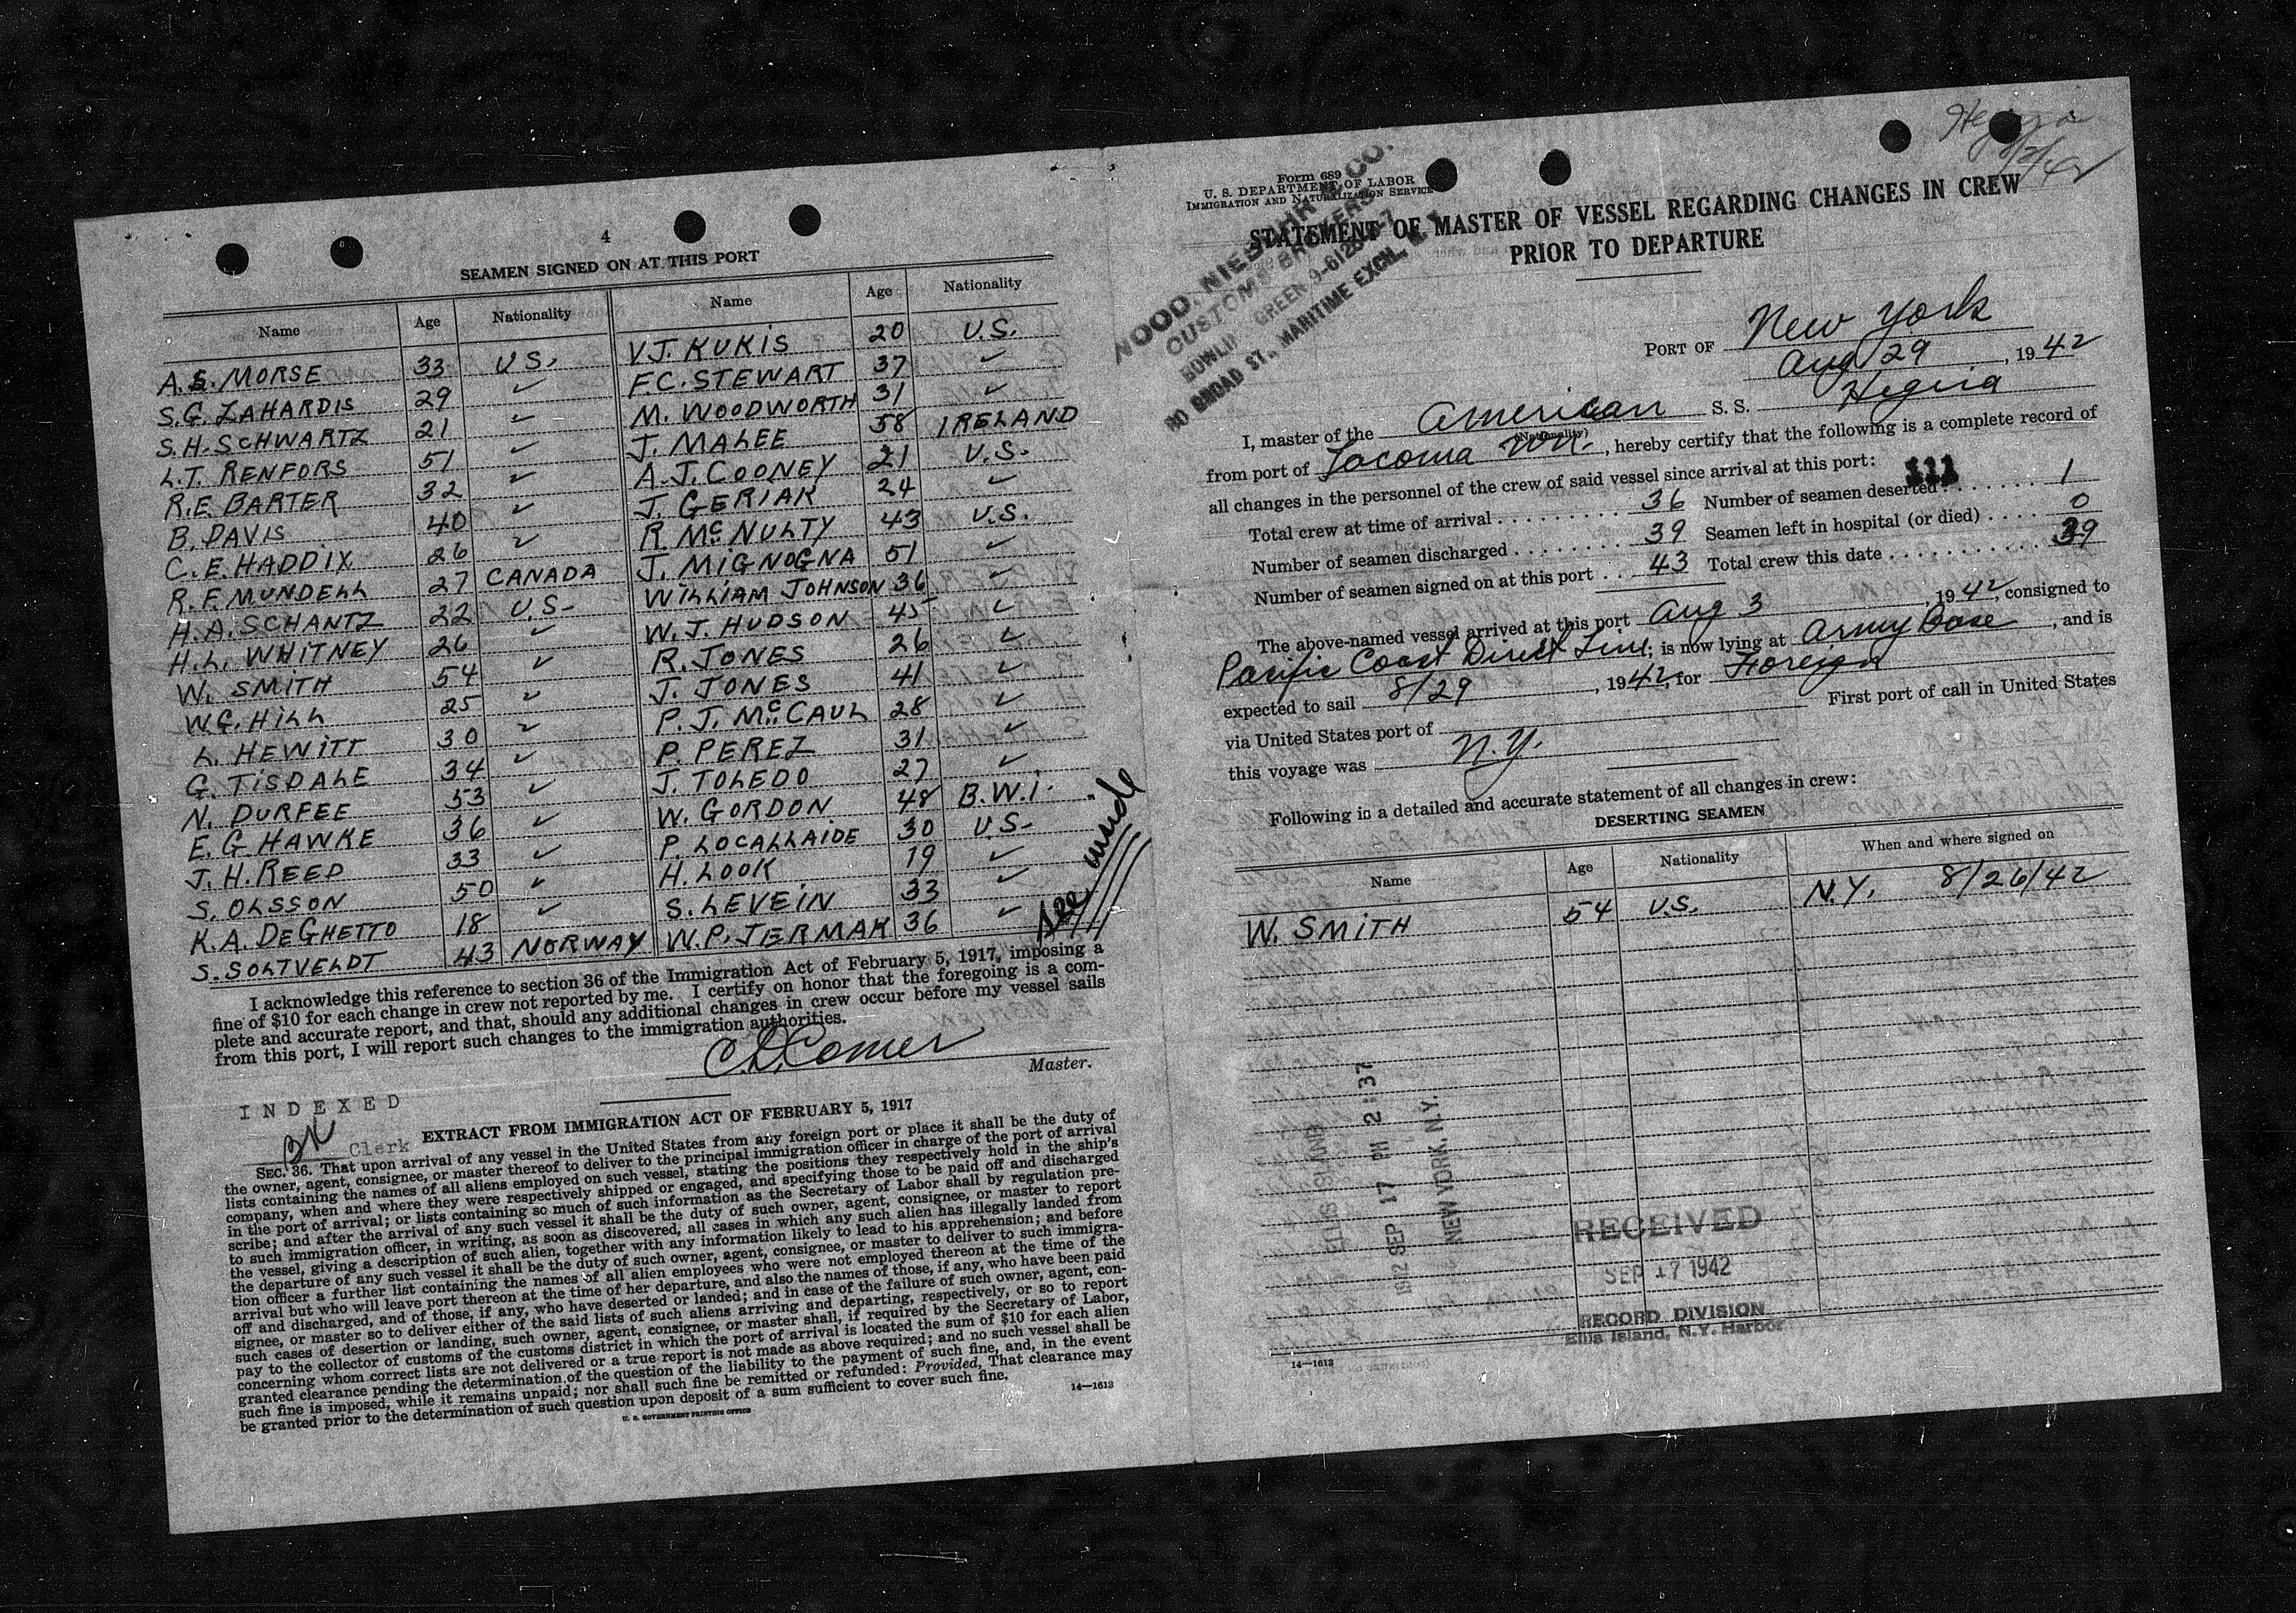 4
SEAMEN SIGNED ON AT THIS PORT
Name Age Nationality Name Age Nationality
A.S. MORSE 33 U.S. V.J. KUKIS 20 U.S.
S.G. LAHARDIS 29 ✓ F.C. STEWART 37 ✓
S.H. SCHWARTZ 21 ✓ M. WOODWORTH 31 ✓
L.T. RENFORS 51 ✓ J. MALEE 58 IRELAND
R.E. BARTER 32 ✓ A.J. COONEY 21 U.S.
B. DAVIS 40 ✓ J. GERIAK 24 ✓
C.E. HADDIX 26 ✓ R. McNULTY 43 U.S.
R.F. MUNDELL 27 CANADA J. MIGNOGNA 51 ✓
H.A. SCHANTZ 22 U.S. WILLIAM JOHNSON 36 ✓
H.L. WHITNEY 26 ✓ W.J. HUDSON 45 ✓
W. SMITH 54 ✓ R. JONES 26 ✓
W.G. HILL 25 ✓ J. JONES 41 ✓
L. HEWITT 30 ✓ P.J. McCAUL 28 ✓
G. TISDALE 34 ✓ P. PEREZ 31 ✓
N. DURFEE 53 ✓ J. TOLEDO 27 ✓
E.G. HAWKE 36 ✓ W. GORDON 48 B.W.I.
J.H. REED 33 ✓ P. LOCALLAIDE 30 U.S.
S. OLSSON 50 ✓ H. LOOK 19 ✓
K.A. DEGHETTO 18 ✓ S. LEVEIN 33 ✓
S. SOLTVELDT 43 NORWAY W.P. JERMAK 36 ✓
See inside
I acknowledge this reference to section 36 of the Immigration Act of February 5, 1917, imposing a
fine of $10 for each change in crew not reported by me. I certify on honor that the foregoing is a com-
plete and accurate report, and that, should any additional changes in crew occur before my vessel sails
from this port, I will report such changes to the immigration authorities.
C.D. Comer
Master.
INDEXED
Clerk
EXTRACT FROM IMMIGRATION ACT OF FEBRUARY 5, 1917
SEC. 36. That upon arrival of any vessel in the United States from any foreign port or place it shall be the duty of
the owner, agent, consignee, or master thereof to deliver to the principal immigration officer in charge of the port of arrival
lists containing the names of all aliens employed on such vessel, stating the positions they respectively hold in the ship's
company, when and where they were respectively shipped or engaged, and specifying those to be paid off and discharged
in the port of arrival; or lists containing so much of such information as the Secretary of Labor shall by regulation pre-
scribe; and after the arrival of any such vessel it shall be the duty of such owner, agent, consignee, or master to report
to such immigration officer, in writing, as soon as discovered, all cases in which any such alien has illegally landed from
the vessel, giving a description of such alien, together with any information likely to lead to his apprehension; and before
the departure of any such vessel it shall be the duty of such owner, agent, consignee, or master to deliver to such immigra-
tion officer a further list containing the names of all alien employees who were not employed thereon at the time of the
arrival but who will leave port thereon at the time of her departure, and also the names of those, if any, who have been paid
off and discharged, and of those, if any, who have deserted or landed; and in case of the failure of such owner, agent, con-
signee, or master so to deliver either of the said lists of such aliens arriving and departing, respectively, or so to report
such cases of desertion or landing, such owner, agent, consignee, or master shall, if required by the Secretary of Labor,
pay to the collector of customs of the customs district in which the port of arrival is located the sum of $10 for each alien
concerning whom correct lists are not delivered or a true report is not made as above required; and no such vessel shall be
granted clearance pending the determination of the question of the liability to the payment of such fine, and, in the event
such fine is imposed, while it remains unpaid; nor shall such fine be remitted or refunded: Provided, That clearance may
be granted prior to the determination of such question upon deposit of a sum sufficient to cover such fine.
14—1613
U. S. GOVERNMENT PRINTING OFFICE
Form 689
U. S. DEPARTMENT OF LABOR
IMMIGRATION AND NATURALIZATION SERVICE
CUSTOM BROKERS
BROAD ST., MARITIME EXCH.
STATEMENT OF MASTER OF VESSEL REGARDING CHANGES IN CREW
PRIOR TO DEPARTURE
PORT OF New York
Aug 29, 1942
I, master of the American S. S. Hegira
(Nationality)
from port of Tacoma Wn., hereby certify that the following is a complete record of
all changes in the personnel of the crew of said vessel since arrival at this port:
Total crew at time of arrival 36 Number of seamen deserted 1
Number of seamen discharged 39 Seamen left in hospital (or died) 0
Number of seamen signed on at this port 43 Total crew this date 39
The above-named vessel arrived at this port Aug 3, 1942, consigned to
Pacific Coast Direct Line; is now lying at Army Base, and is
expected to sail 8/29, 1942, for Foreign
via United States port of First port of call in United States
this voyage was N.Y.
Following is a detailed and accurate statement of all changes in crew:
DESERTING SEAMEN
Name Age Nationality When and where signed on
W. SMITH 54 U.S. N.Y. 8/26/42
ELLIS ISLAND
1942 SEP 17 PM 2:37
NEW YORK, N.Y.
RECEIVED
SEP 17 1942
RECORD DIVISION
Ellis Island, N.Y. Harbor
14—1613